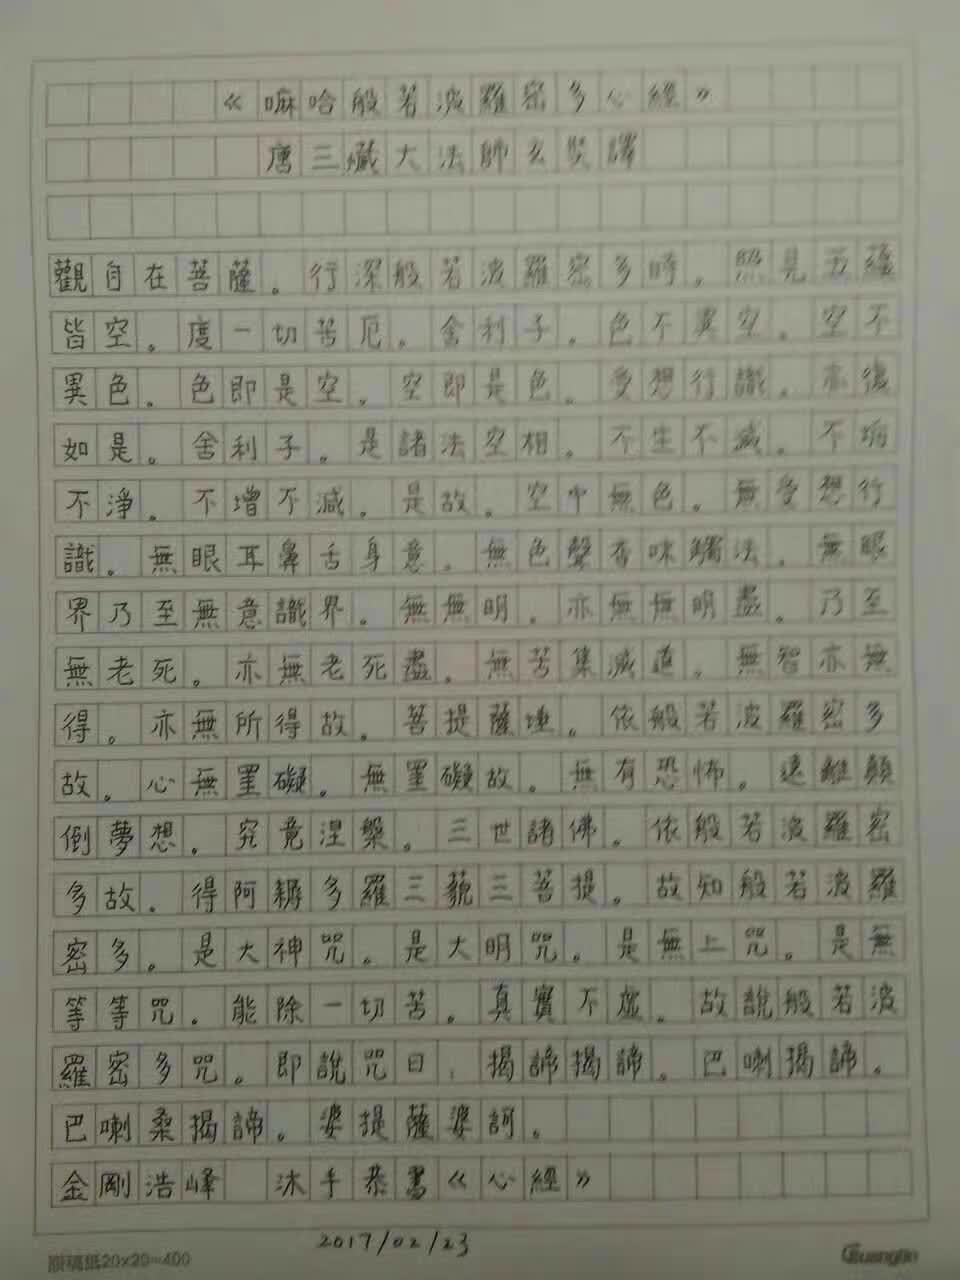 《嘛哈般若波羅密多心經》
唐三藏大法師玄奘譯
觀自在菩薩。行深般若波羅密多時。照見五蘊
皆空。度一切苦厄。舍利子。色不異空。空不
異色。色即是空。空即是色。受想行識。亦復
如是。舍利子。是諸法空相。不生不滅。不垢
不淨。不增不減。是故。空中無色。無受想行
識。無眼耳鼻舌身意。無色聲香味觸法。無眼
界乃至無意識界。無無明。亦無無明盡。乃至
無老死。亦無老死盡。無苦集滅道。無智亦無
得。亦無所得故。菩提薩埵。依般若波羅密多
故。心無罣礙。無罣礙故。無有恐怖。遠離顛
倒夢想。究竟涅槃。三世諸佛。依般若波羅密
多故。得阿耨多羅三藐三菩提。故知般若波羅
密多。是大神咒。是大明咒。是無上咒。是無
等等咒。能除一切苦。真實不虛。故說般若波
羅密多咒。即說咒曰：揭諦揭諦。巴喇揭諦。
巴喇桑揭諦。婆提薩婆訶。
金剛浩峰 沐手恭書《心經》
2017/02/23
原稿紙20×20=400
Guangbo